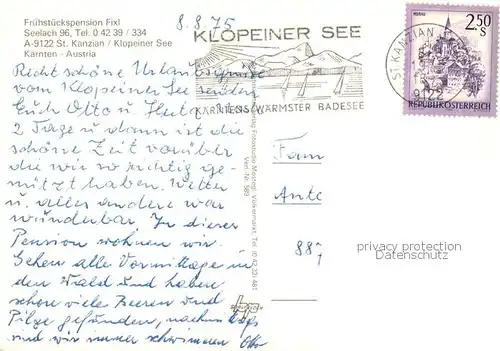 Frühstückspension Fixl
Seelach 96, Tel. 0 42 39 / 334
A-9122 St. Kanzian / Klopeiner See
Kärnten - Austria
8.8.75
KLOPEINER SEE
KÄRNTENS WÄRMSTER BADESEE
ST. KANZIAN
9122
MURAU
2.50 S
REPUBLIK ÖSTERREICH
Recht schöne Urlaubsgrüße
vom Klopeiner See senden
Euch Otto u. Herta.
2 Tage u. dann ist die
schöne Zeit vorüber
die wir so richtig ge-
nützt haben. Wetter
u. alles andere war
wunderbar. In dieser
Pension wohnen wir.
Gehen alle Vormittage in
den Wald und haben
schon viele Beeren und
Pilze gefunden, nachmittags
sind wir immer schwimmen
Fam
Anto
887
privacy protection
Datenschutz